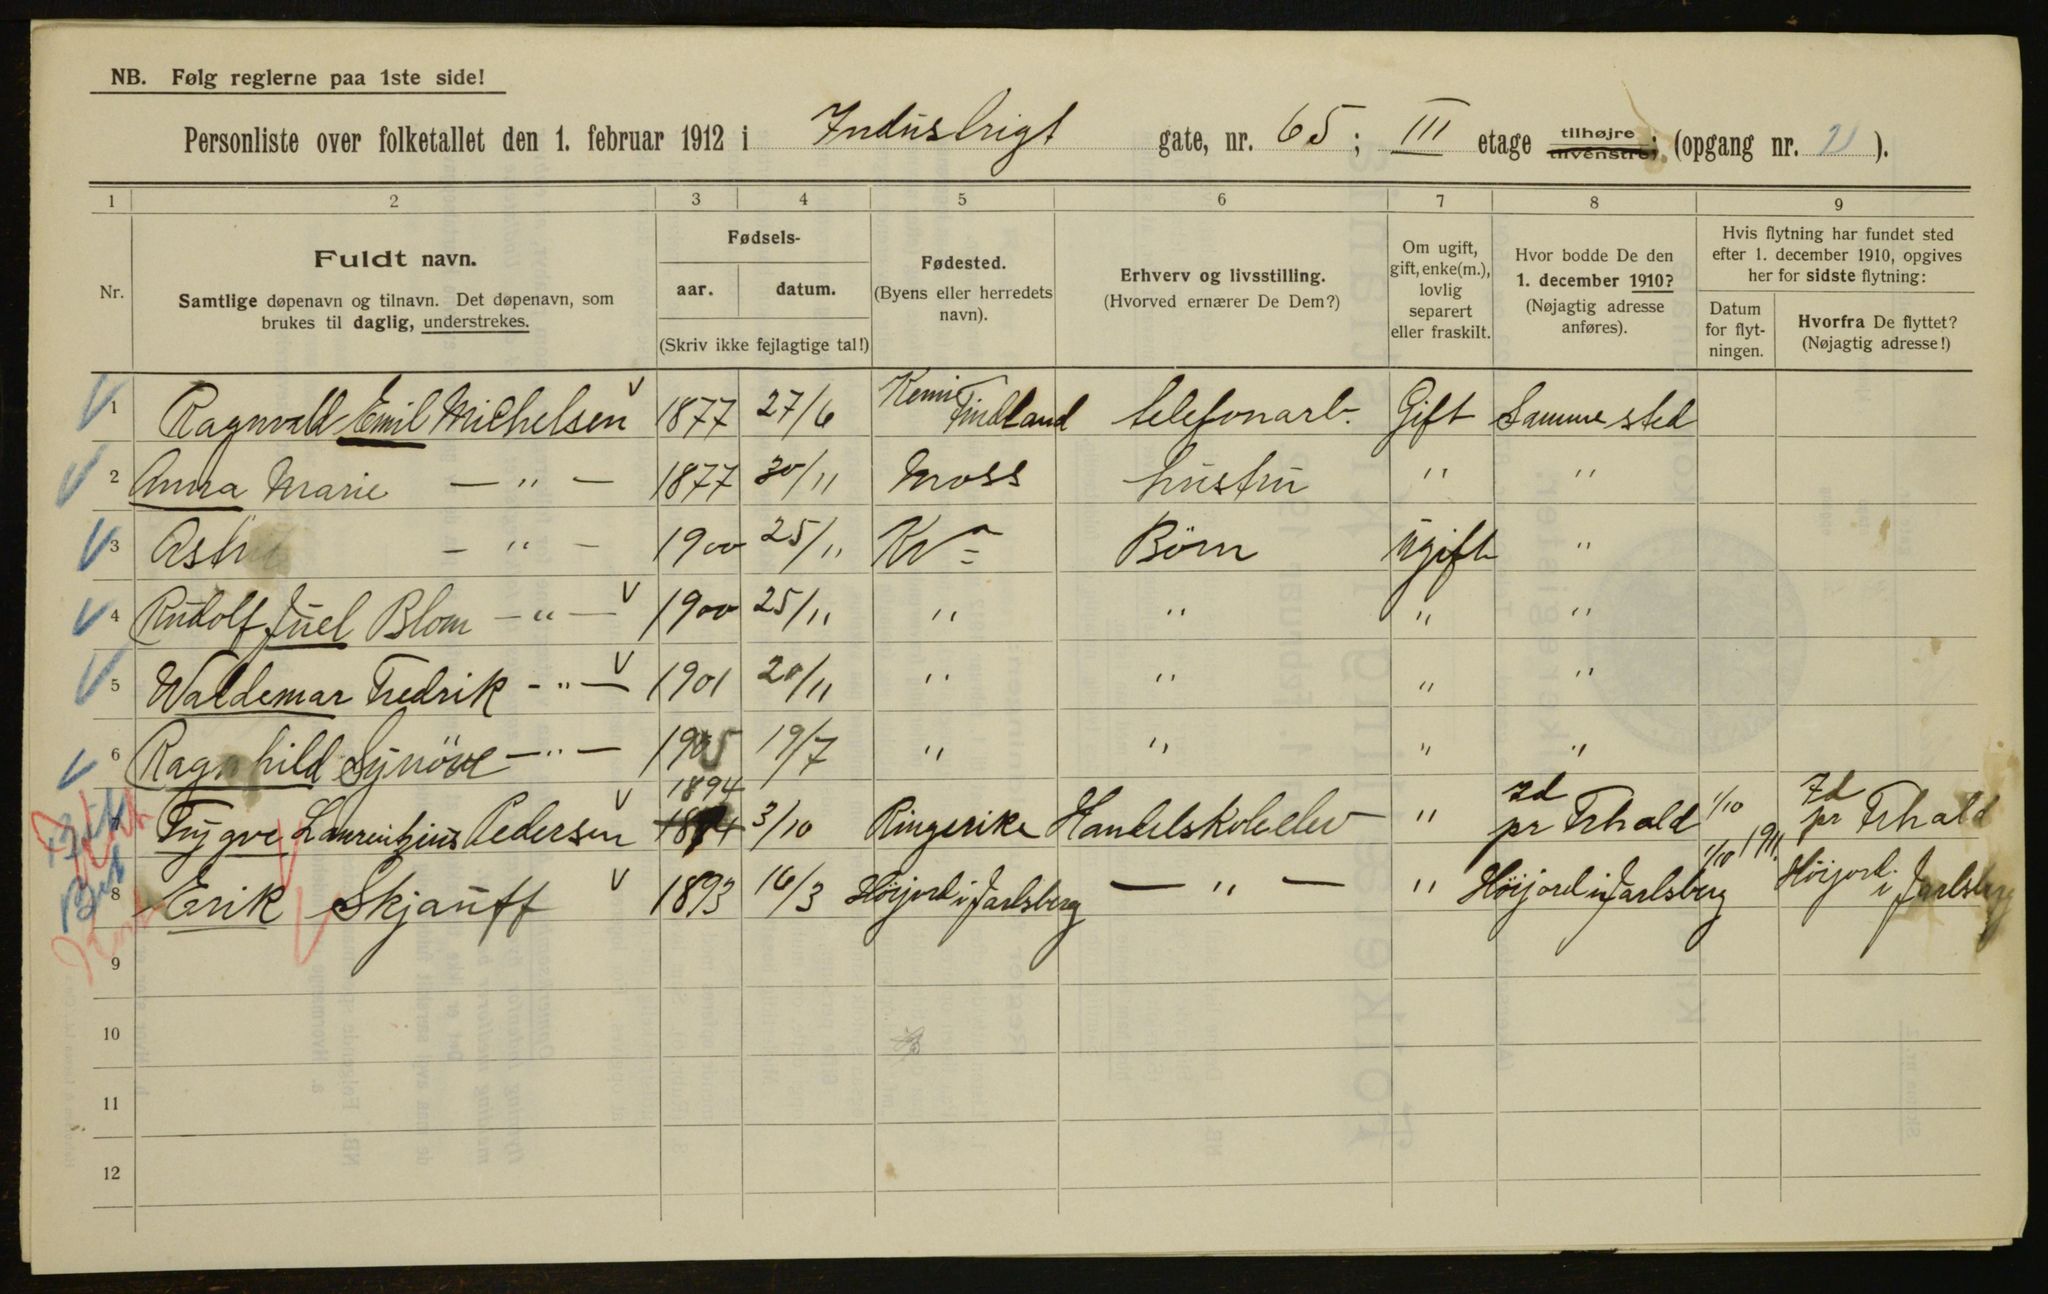 NB. Følg reglerne paa 1ste side!
Personliste over folketallet den 1. februar 1912 i Industrigt gate, nr. 65; III etage tilhøjre tilvenstre; (opgang nr. 21).
1 2 3 4 5 6 7 8 9
Nr.
Fuldt navn.
Samtlige døpenavn og tilnavn. Det døpenavn, som
brukes til daglig, understrekes.
Fødsels-
aar. datum.
(Skriv ikke fejlagtige tal!)
Fødested.
(Byens eller herredets
navn).
Erhverv og livsstilling.
(Hvorved ernærer De Dem?)
Om ugift,
gift, enke(m.),
lovlig
separert
eller fraskilt.
Hvor bodde De den
1. december 1910?
(Nøjagtig adresse
anføres).
Hvis flytning har fundet sted
efter 1. december 1910, opgives
her for sidste flytning:
Datum
for flyt-
ningen.
Hvorfra De flyttet?
(Nøjagtig adresse!)
1 Ragnvald Emil Michelsen 1877 27/6 Kemi Findland telefonarb. Gift Samme sted
2 Anna Marie — " — 1877 30/11 Moss hustru " "
3 Astrid — " — 1900 25/11 Kra Børn Ugift "
4 Rudolf Juel Blom — " — 1900 25/11 " " " "
5 Waldemar Fredrik — " — 1901 20/11 " " " "
6 Ragnhild Synöve — " — 1905 19/7 " " " "
7 Trygve Laurentzius Pedersen 1894 3/10 Ringerike Handelskoleelev " Id pr Frhald 1/10 Id pr Frhald
8 Erik Skjauff 1893 16/3 Höijord i Jarlsberg — " — " Höijord i Jarlsberg 1/10 1911. Höijord i Jarlsberg
9
10
11
12